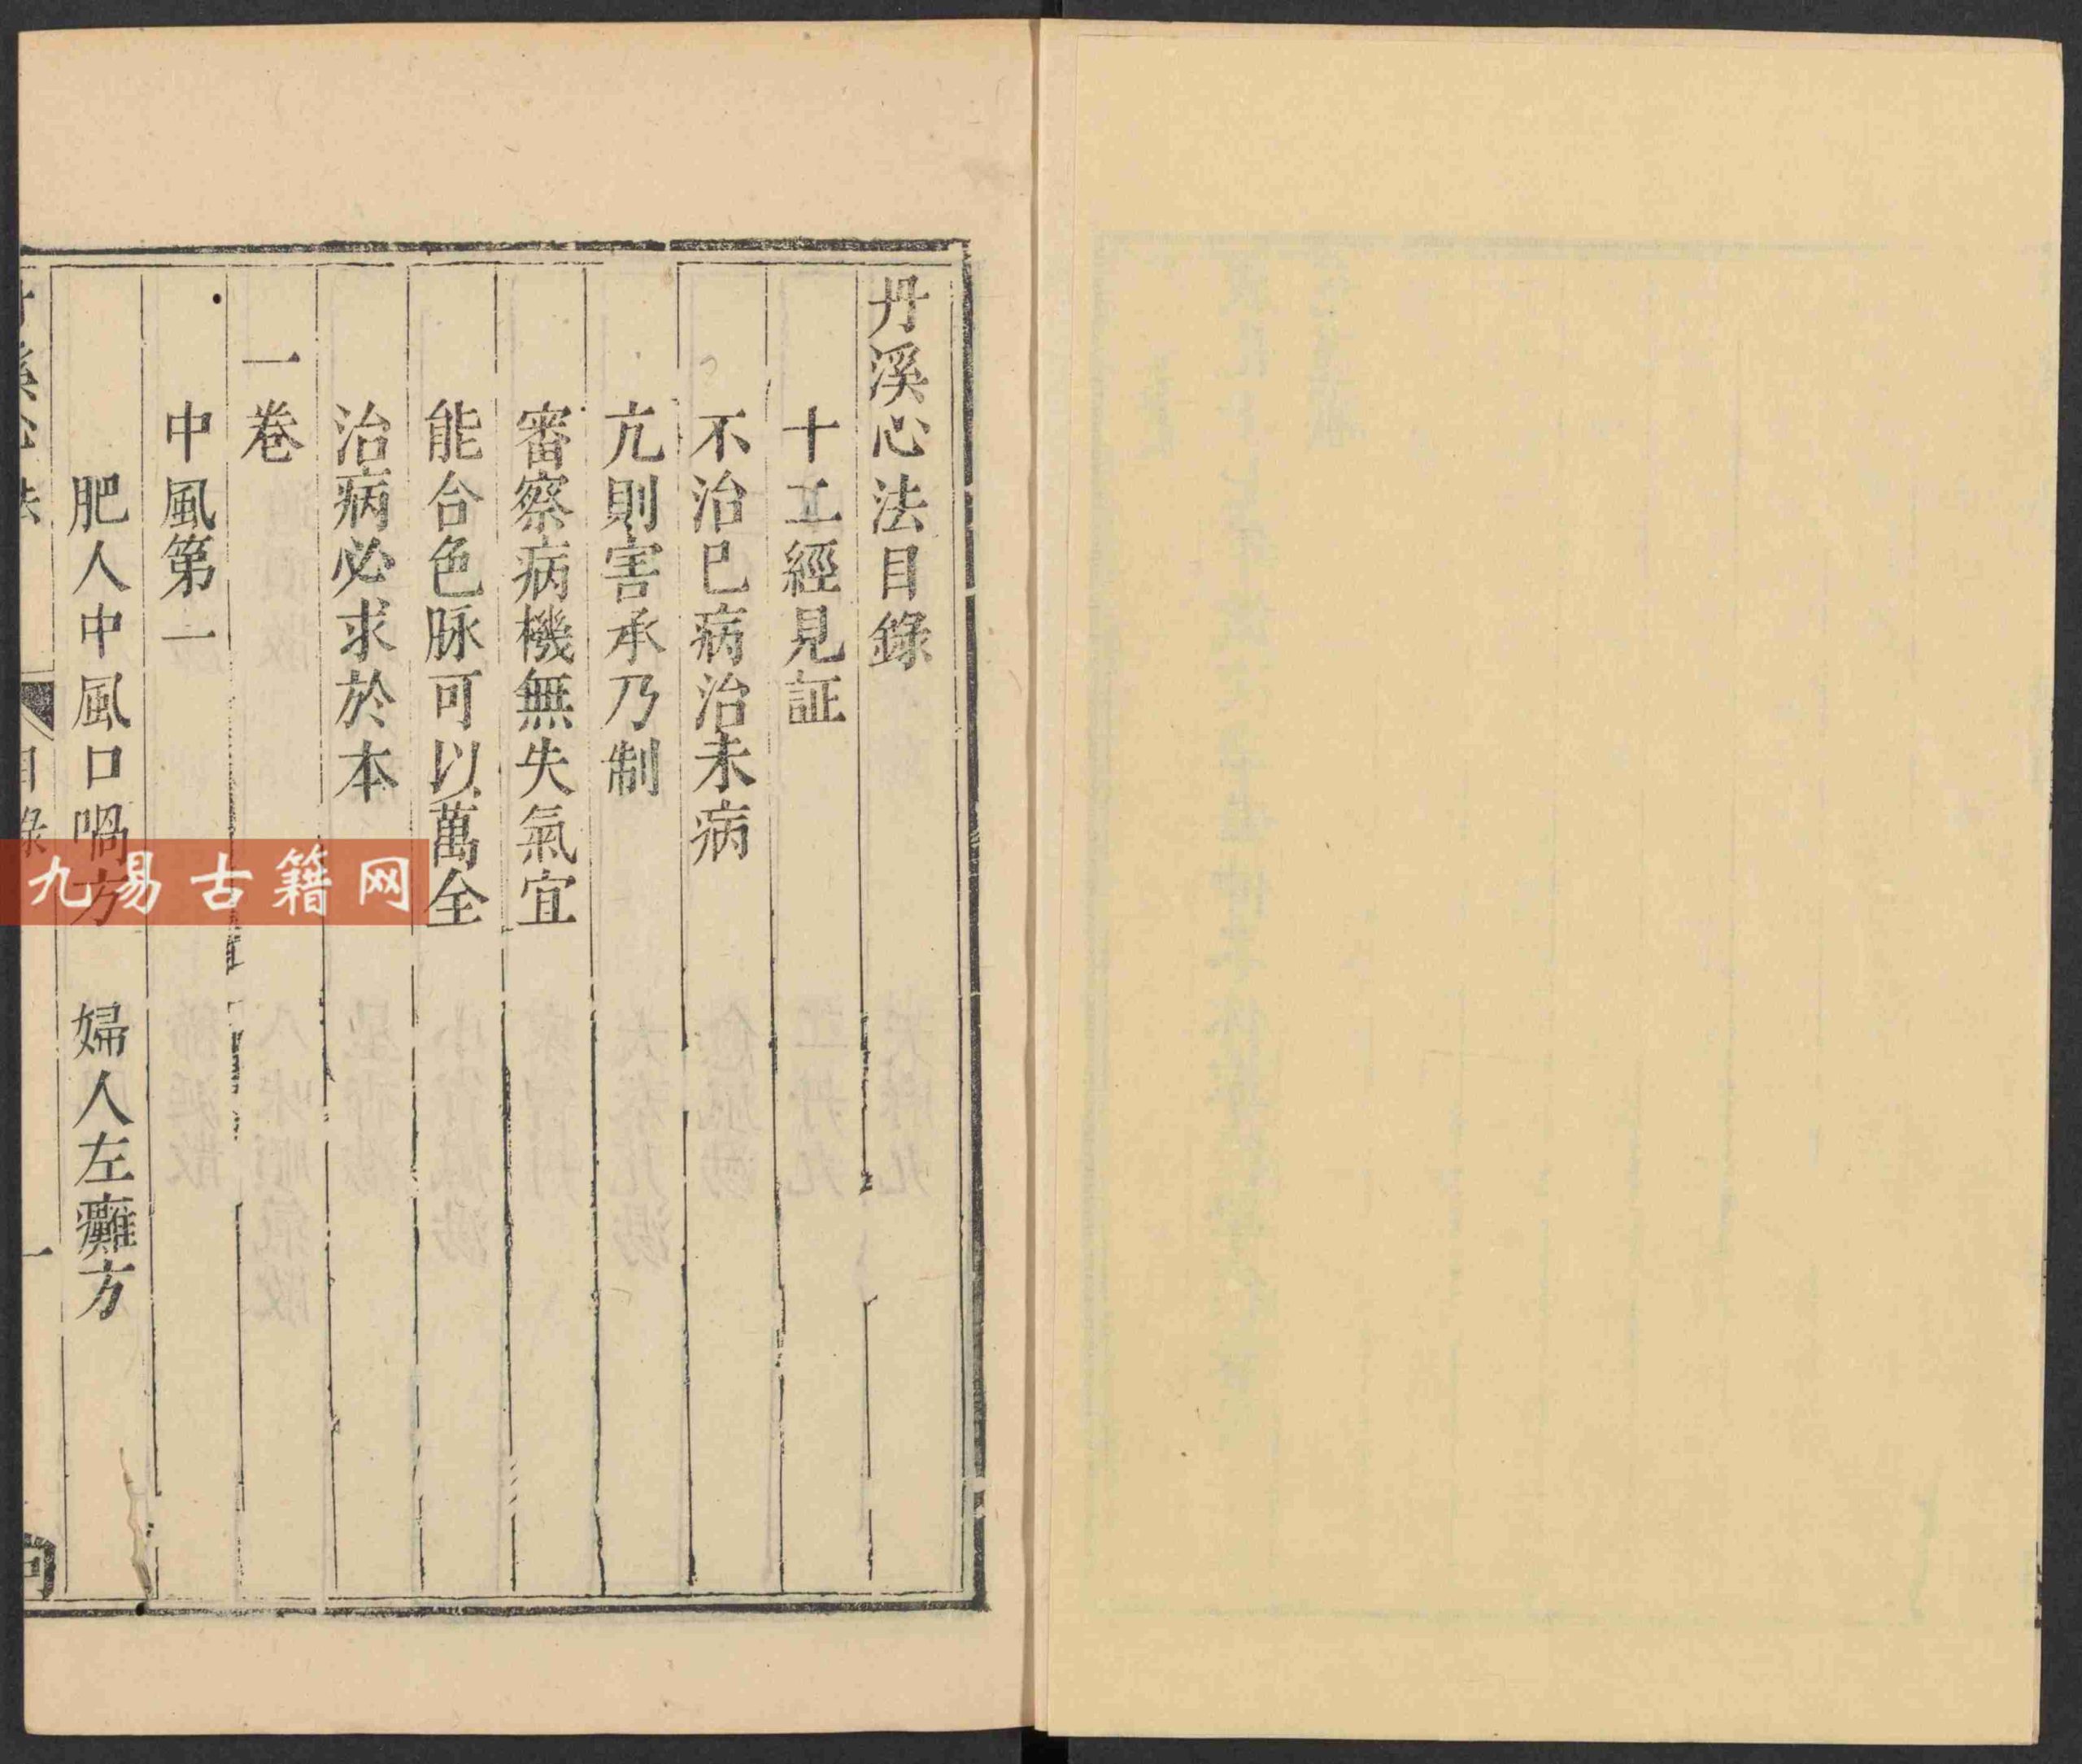 丹溪心法目錄
十二經見証
不治已病治未病
亢則害承乃制
審察病機無失氣宜
能合色脉可以萬全
治病必求於本
一卷
中風第一
肥人中風口喎方　婦人左癱方
目錄
一
九易古籍网